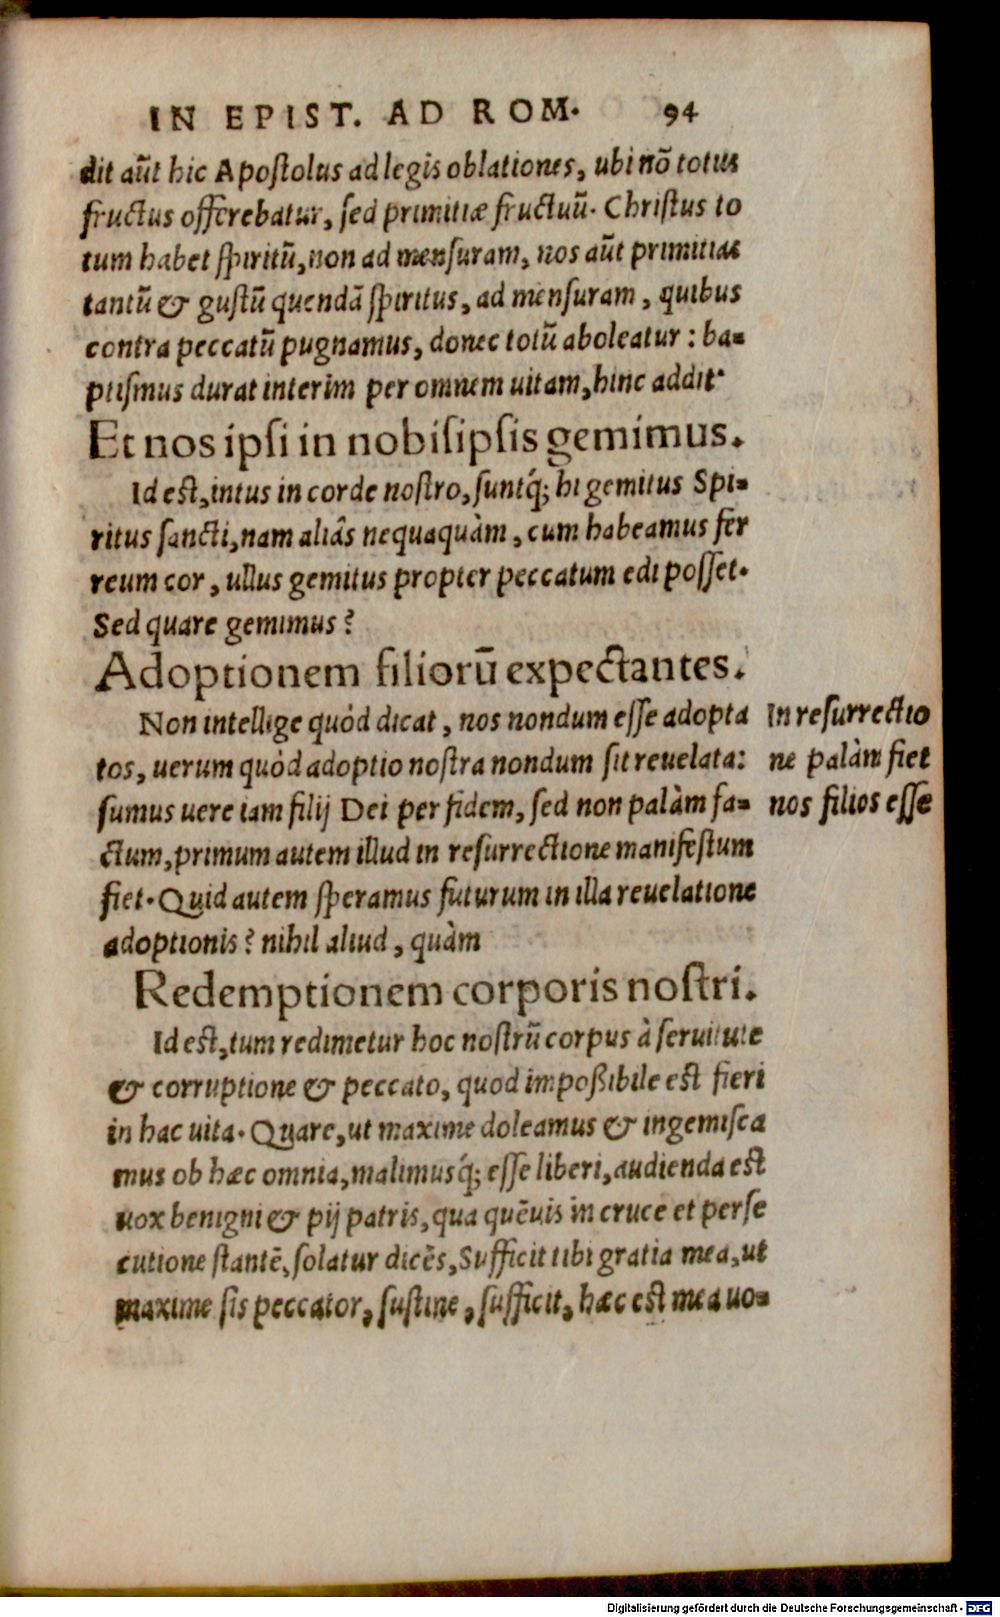 IN EPIST. AD ROM. 94
dit aūt hic Apostolus ad legis oblationes, ubi nō totus
fructus offerebatur, sed primitiæ fructuū. Christus to
tum habet spiritū, non ad mensuram, nos aūt primitias
tantū & gustū quendā spiritus, ad mensuram, quibus
contra peccatū pugnamus, donec totū aboleatur: ba-
ptismus durat interim per omnem uitam, hinc addit.
Et nos ipsi in nobisipsis gemimus.
Id est, intus in corde nostro, suntq́; hi gemitus Spi-
ritus sancti, nam aliâs nequaquàm, cum habeamus fer
reum cor, ullus gemitus propter peccatum edi posset.
Sed quare gemimus?
Adoptionem filiorū expectantes.
Non intellige quòd dicat, nos nondum esse adopta
tos, uerum quòd adoptio nostra nondum sit reuelata:
sumus uere iam filij Dei per fidem, sed non palàm fa-
ctum, primum autem illud in resurrectione manifestum
fiet. Quid autem speramus futurum in illa reuelatione
adoptionis? nihil aliud, quàm
In resurrectio
ne palàm fiet
nos filios esse
Redemptionem corporis nostri.
Id est, tum redimetur hoc nostrū corpus à seruitute
& corruptione & peccato, quod impoßibile est fieri
in hac uita. Quare, ut maxime doleamus & ingemisca
mus ob hæc omnia, malimusq́; esse liberi, audienda est
uox benigni & pij patris, qua quēuis in cruce et perse
cutione stantē, solatur dicēs, Sufficit tibi gratia mea, ut
maxime sis peccator, sustine, sufficit, hæc est mea uo-
Digitalisierung gefördert durch die Deutsche Forschungsgemeinschaft - DFG